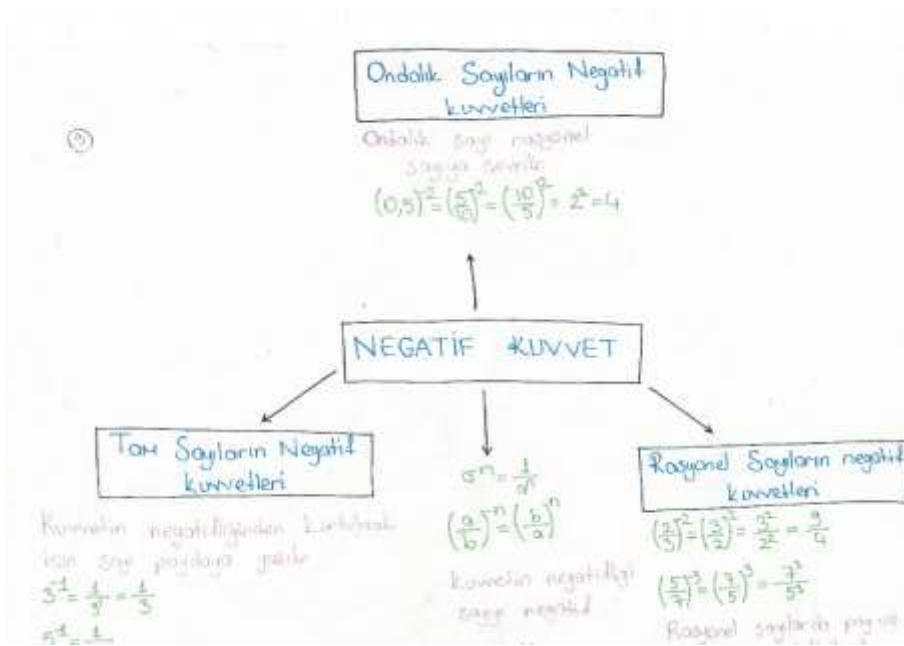 Ondalık Sayıların Negatif
kuvvetleri
Ondalık sayı rasyonel
sayıya
(0,5)⁻²=(5/10)⁻²=(10/5)²= 2²=4
NEGATİF KUVVET
Tam Sayıların Negatif
kuvvetleri
Kuvvetin negatifliğinden kurtulmak
için sayı paydaya
3⁻¹=1/3¹=1/3
5⁻¹=1/
a⁻ⁿ=1/aⁿ
(a/b)⁻ⁿ=(b/a)ⁿ
kuvvetin negatifliği
sayıyı negatif
Rasyonel Sayıların negatif
kuvvetleri
(2/3)⁻²=(3/2)²=3²/2²=9/4
(5/7)⁻³=(7/5)³=7³/5³
Rasyonel sayılarda pay ve